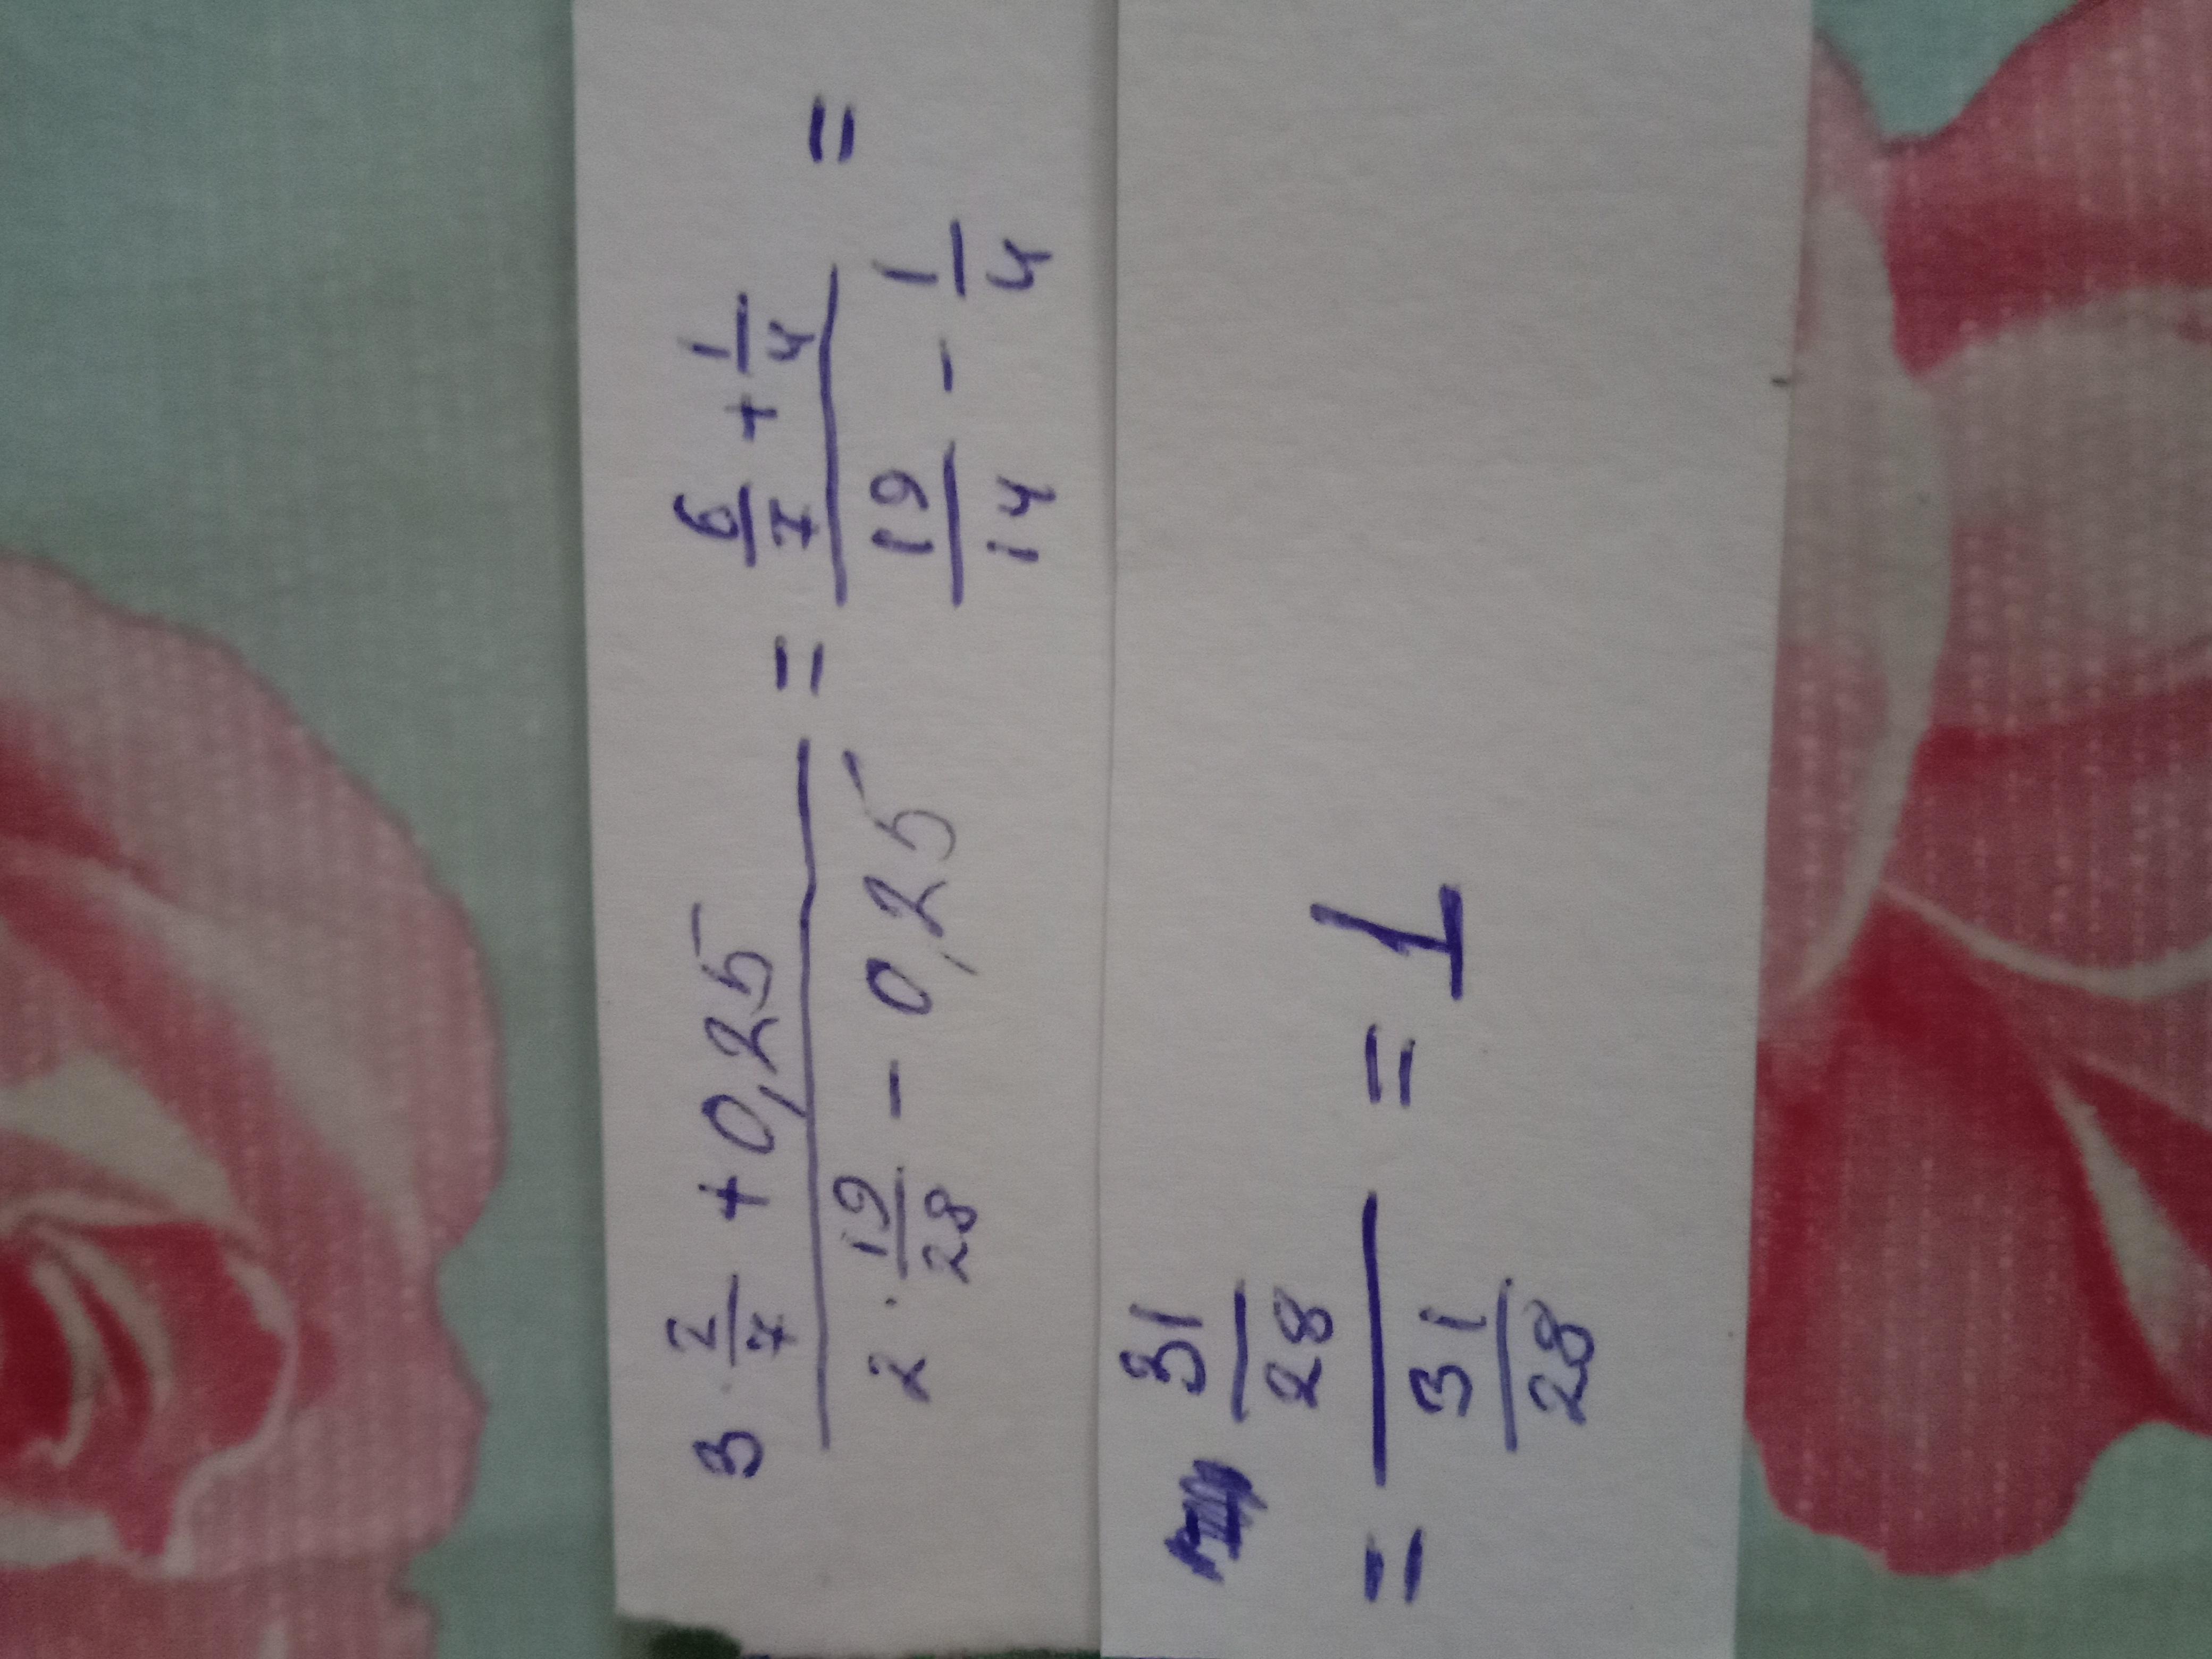 3 · 2/7 + 0,25 / 2 · 19/28 - 0,25 = 6/7 + 1/4 / 19/14 - 1/4 =
= 31/28 / 31/28 = 1